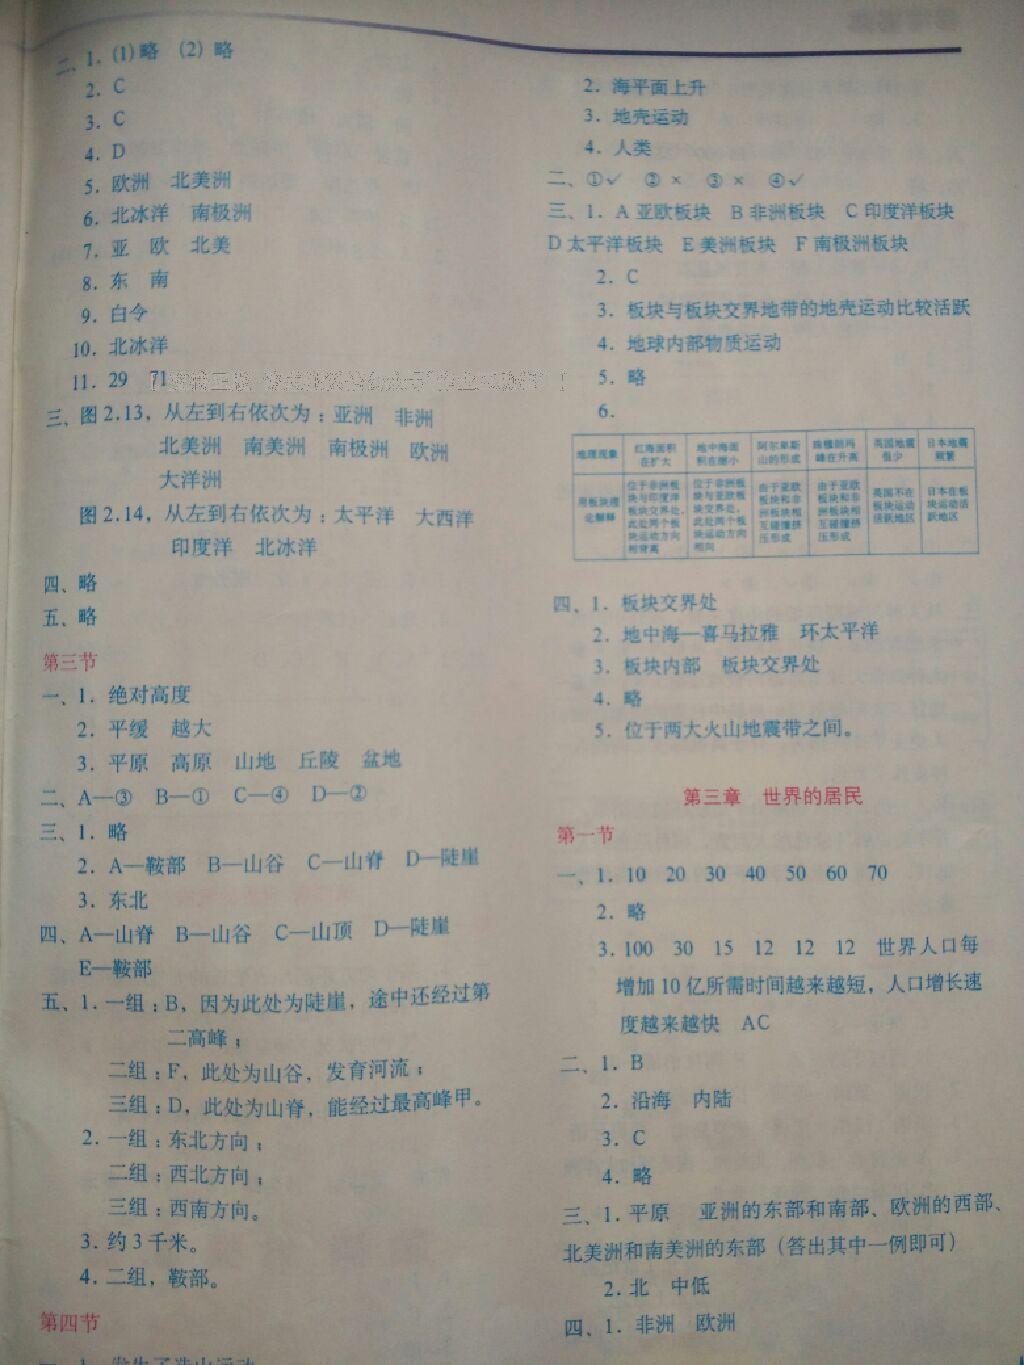 二、1. (1)略 (2)略
2. C
3. C
4. D
5. 欧洲 北美洲
6. 北冰洋 南极洲
7. 亚 欧 北美
8. 东 南
9. 白令
10. 北冰洋
11. 29 71
三、图2.13，从左到右依次为：亚洲 非洲
北美洲 南美洲 南极洲 欧洲
大洋洲
图2.14，从左到右依次为：太平洋 大西洋
印度洋 北冰洋
四、略
五、略
第三节
一、1. 绝对高度
2. 平缓 越大
3. 平原 高原 山地 丘陵 盆地
二、A—③ B—① C—④ D—②
三、1. 略
2. A—鞍部 B—山谷 C—山脊 D—陡崖
3. 东北
四、A—山脊 B—山谷 C—山顶 D—陡崖
E—鞍部
五、1. 一组：B，因为此处为陡崖，途中还经过第
二高峰；
二组：F，此处为山谷，发育河流；
三组：D，此处为山脊，能经过最高峰甲。
2. 一组：东北方向；
二组：西北方向；
三组：西南方向。
3. 约3千米。
4. 二组，鞍部。
第四节
一、1. 发生了造山运动
2. 海平面上升
3. 地壳运动
4. 人类
二、①✓ ②× ③× ④✓
三、1. A 亚欧板块 B 非洲板块 C 印度洋板块
D 太平洋板块 E 美洲板块 F 南极洲板块
2. C
3. 板块与板块交界地带的地壳运动比较活跃
4. 地球内部物质运动
5. 略
6.
地理现象 红海面积在扩大 地中海面积在缩小 阿尔卑斯山的形成 珠穆朗玛峰在升高 英国地震很少 日本地震频繁
用板块理论解释 位于非洲板块与印度洋板块交界处，此处两个板块运动方向相背离 位于非洲板块与亚欧板块交界处，此处两个板块运动方向相向 由于亚欧板块和非洲板块相互碰撞挤压形成 由于亚欧板块和非洲板块相互碰撞挤压形成 英国不在板块运动活跃地区 日本在板块运动活跃地区
四、1. 板块交界处
2. 地中海—喜马拉雅 环太平洋
3. 板块内部 板块交界处
4. 略
5. 位于两大火山地震带之间。
第三章 世界的居民
第一节
一、1. 10 20 30 40 50 60 70
2. 略
3. 100 30 15 12 12 12 世界人口每
增加10亿所需时间越来越短，人口增长速
度越来越快 AC
二、1. B
2. 沿海 内陆
3. C
4. 略
三、1. 平原 亚洲的东部和南部、欧洲的西部、
北美洲和南美洲的东部（答出其中一例即可）
2. 北 中低
四、1. 非洲 欧洲